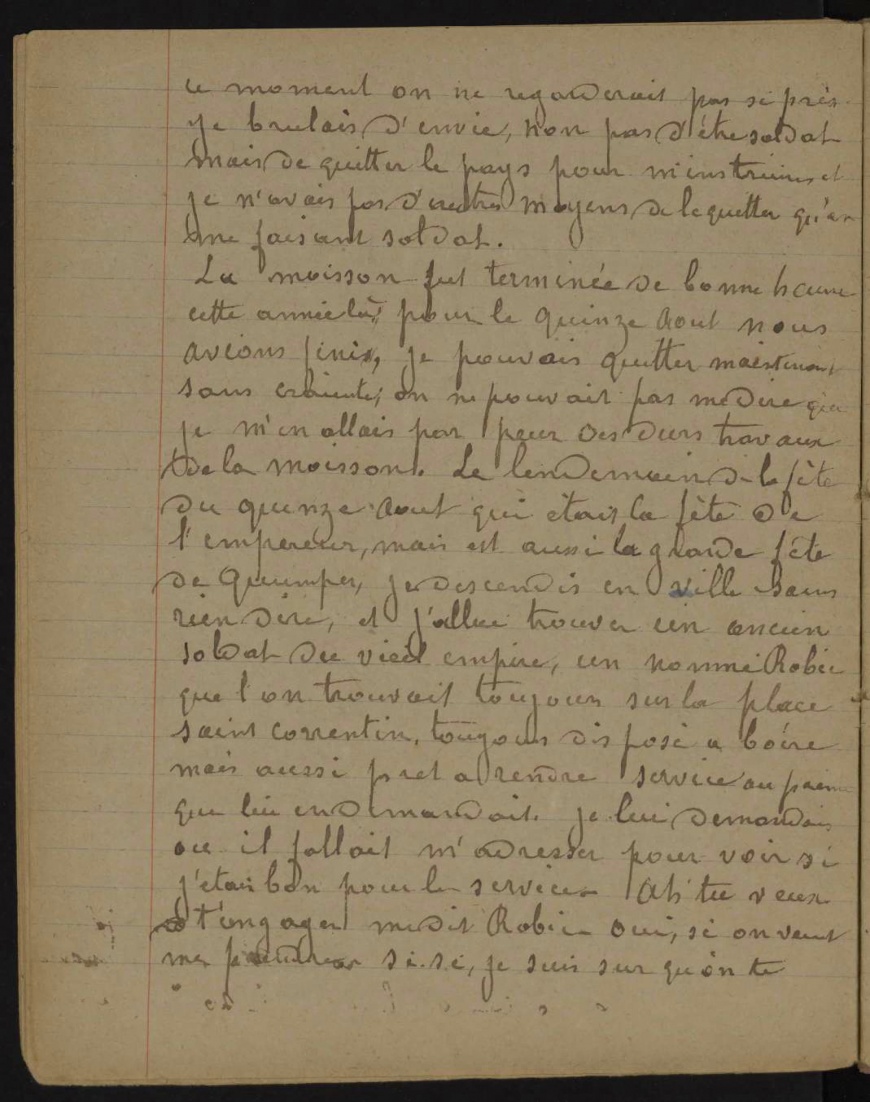 ce moment on ne regarderait pas si près.
je brulais d'envie, non pas d'être soldat
mais de quitter le pays pour m'instruire et
je n'avais pas d'autres moyens de le quitter qu'en
me faisant soldat.
La moisson fut terminée de bonne heure
cette année là, pour le quinze Aout nous
avions finis, je pouvais quitter maintenant
sans crainte, on ne pouvait pas me dire que
je m'en allais par peur des durs travaux
de la moisson. Le lendemain de la fête
du quinze Aout qui étais la fête de
l'empereur, mais est aussi la grande fête
de Quimper, je descendis en ville sans
rien dire, et j'allai trouver un ancien
soldat du vieil empire, un nommé Robic
que l'on trouvait toujours sur la place
saint Correntin, toujours disposé a boire
mais aussi pret a rendre service au
qui lui en demandait. je lui demandais
ou il fallait m'adresser pour voir si
j'étais bon pour le service. Ah tu veux
t'engager me dit Robic oui, si on veut
me prendre si.si, je suis sur qu'on te